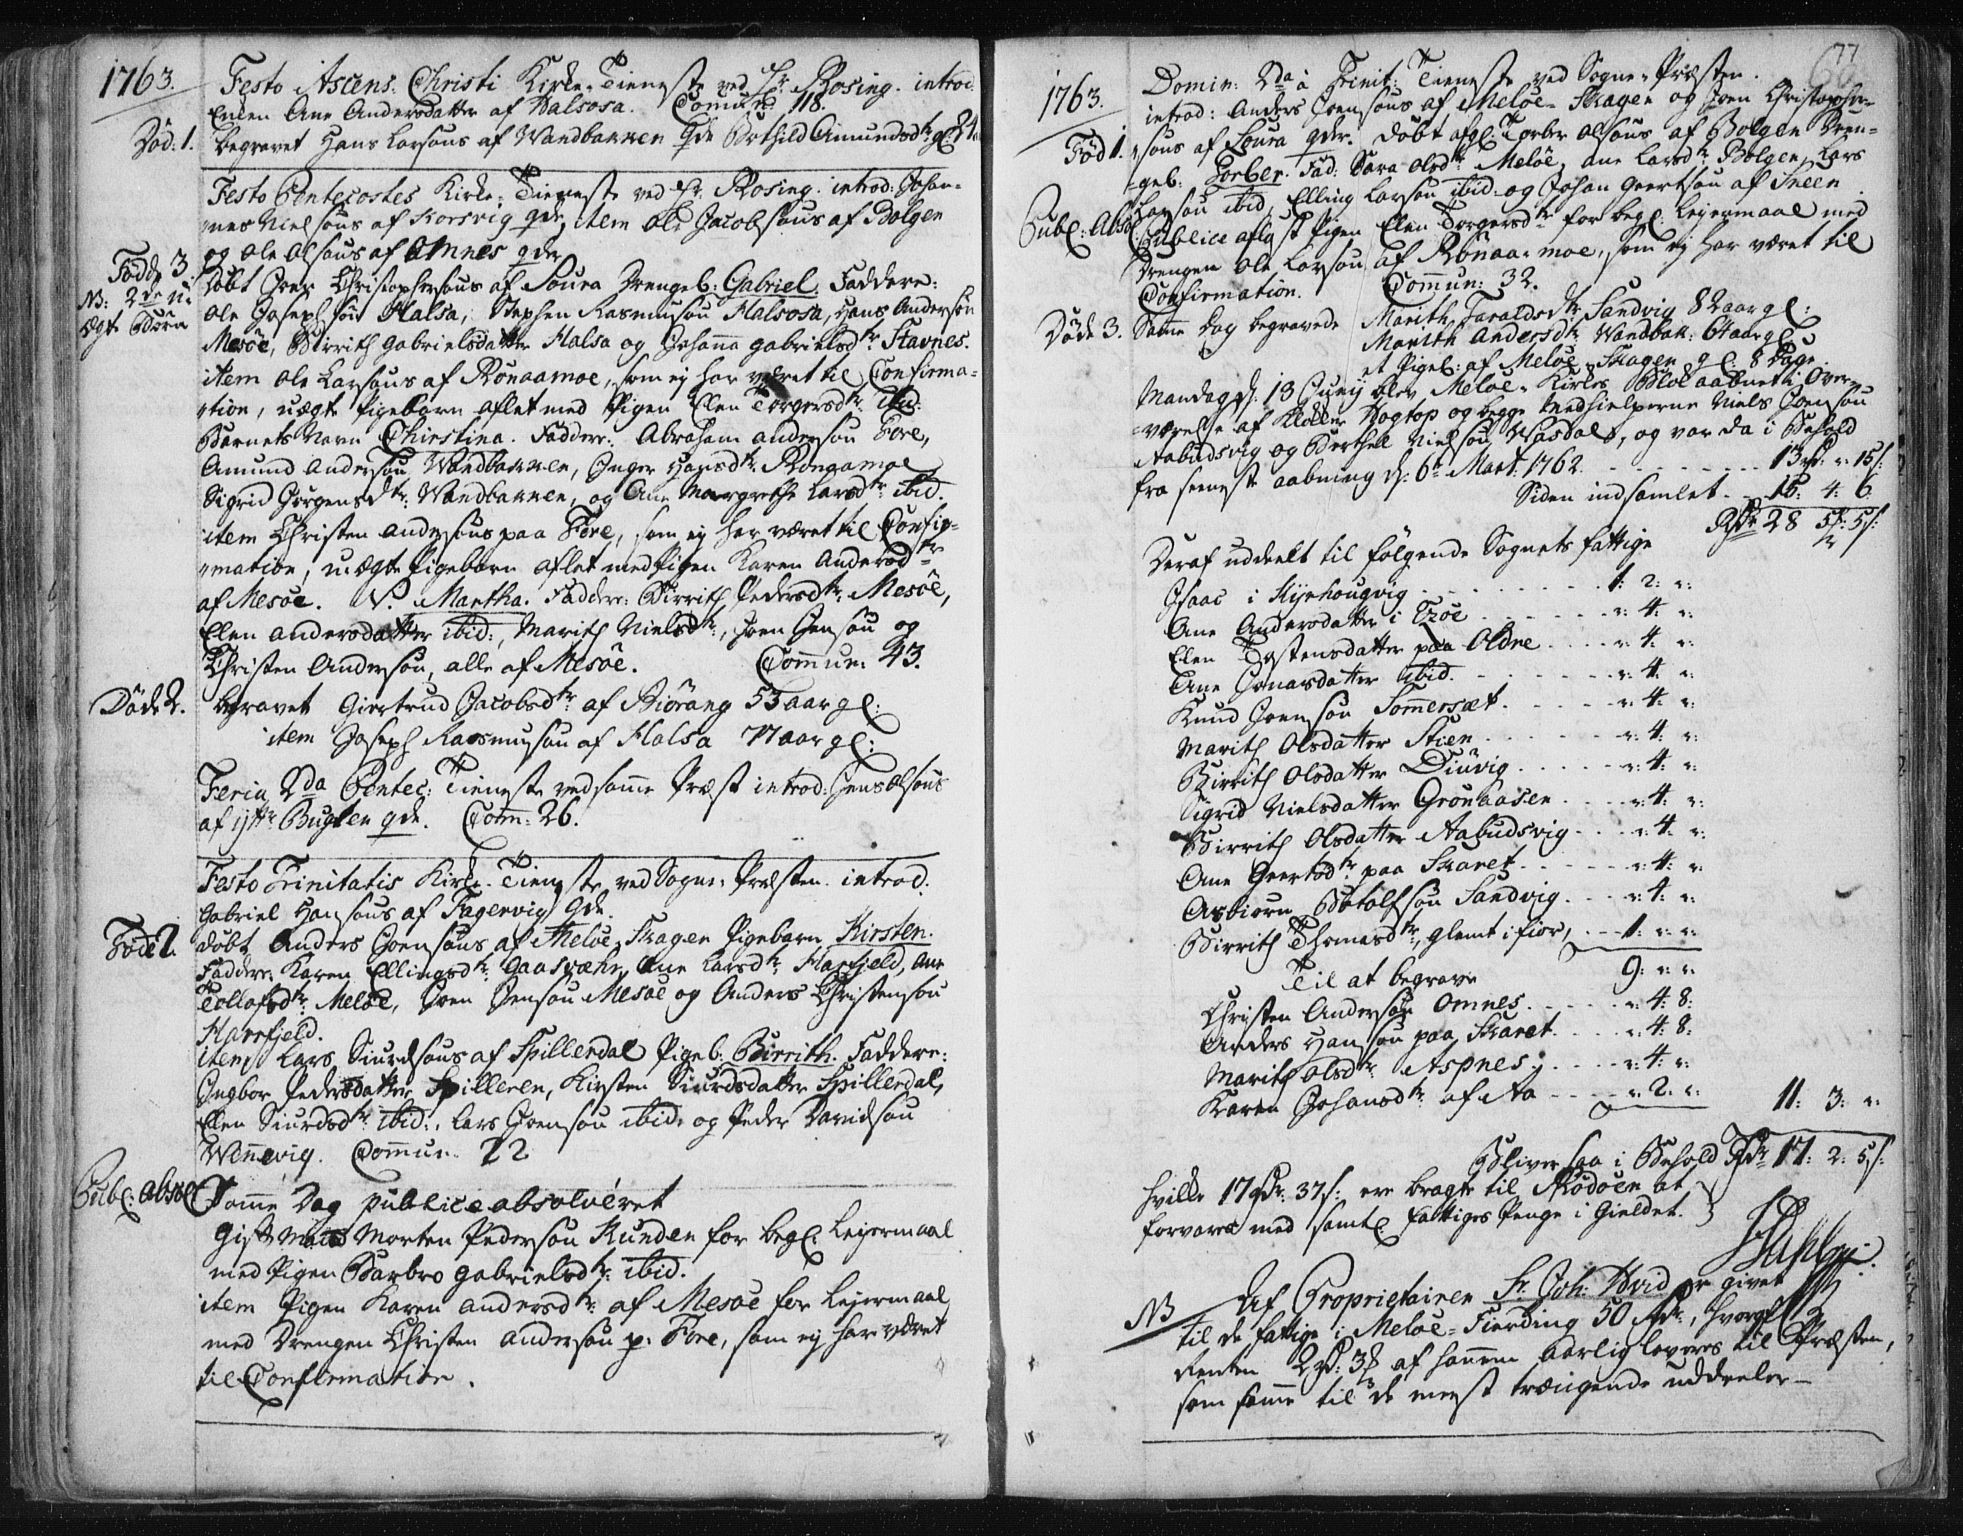 1763.
Festo Ascens: Christi Kirke-Tieneste ved Hr. Rosing. introd.
Enken Ane Andersdatter af Halsosa. Comun: 118.
Död: 1.
begravet Hans Larsöns af Wandbakken qde Bothild Amundsdtr gl: 24
Festo Pentecostes Kirke-Tieneste ved Hr. Rosing. introd: Johan-
nes Nielsöns af Korsvig qde, item Ole Jacobsöns af Bolgen
og Ole Olsöns af Omnes qder
Födde 3.
NB: 2de u-
ægte Börn
Döbt Joen Christophersöns af Soura Drengeb: Gabriel. Faddere:
Ole Josephsön Halsa, Stephen Rasmusön Halsosa, Hans Andersön
Mesöe, Birrith Gabrielsdatter Halsa og Johanna Gabrielsdtr Stavnes.
item Ole Larsöns af Rönaamoe, som ej har været til Confirma-
tion, uægte Pigebarn aflet med Pigen Elen Torgersdtr ibid:
Barnets Navn Chirstina. Faddere: Abraham Andersön Fore,
Amund Andersön Wandbakken, Inger Hansdtr Rongamoe
Sigrid Jörgensdtr: Wandbakken, og Ane Margrethe Larsdtr ibid.
item Christen Andersöns paa Fore, som ej har været til Confir-
mation, uægte Pigebarn aflet med Pigen Karen Andersdtr
af Mesöe. N. Martha. Faddere: Birrith Pedersdtr: Mesöe,
Elen Andersdatter ibid:, Marith Nielsdtr:, Joen Jensön og
Christen Andersön, alle af Mesöe. Commun: 43.
Döde 2.
begravet Giertrud Jacobsdtr af Skiörang 53 aar gl:
item Joseph Rasmusön af Halsa 77 aar gl:
Feria 2da Pentec: Tieneste ved samme Præst introd: Jens Olsöns
af yttr Bugten qde. Comm: 26.
Festo Trinitatis Kirke-Tieneste ved Sogne-Præsten. introd.
Gabriel Hansöns af Fagervig Qde.
Föd: 2.
döbt Anders Joensöns af Meløe-Skagen Pigebarn Kirsten.
Faddere: Karen Ellingsdtr Gaasværn, Ane Larsdtr Harfjeld, Ane
Tollofsdtr: Meløe, Joen Jensön Mesöe og Anders Christensön
Harrfjeld.
item Lars Siurdsöns af Spillerdal Pigeb: Birrith. Faddere:
Ingbor Pedersdatter Spilleren, Kirsten Siurdsdatter Spillerdal,
Elen Siurdsdtr ibid:, Lars Joensön ibid: og Peder Davidsön
Wennevig. Commun: 22
Publ: absol:
Samme Dag publice absolveret
Gift Mand Morten Pedersön Kunden for begl: Leiermaal
med Pigen Barbro Gabrielsdtr: ibid.
item Pigen Karen Andersdtr: af Mesöe for Lejermaal
med Drengen Christen Andersön p: Fore, som ej har været
til Confirmation.
77
1763.
Domin: 2da à Trinit: Tieneste ved Sogne-Præsten.
introd: Anders Joensöns af Meløe-Skagen og Joen Christopher-
söns af Soura qder. Döbt Torber Olsöns af Bolgen Dren-
Föd 1.
geb: Torber. Fad: Sara Olsdtr Meløe, Ane Larsdtr Bolgen, Lars
Larsön ibid, Elling Larsön ibid: og Johan Geertsön af Sneen
Publ: Absol:
Publice afløst Pigen Elen Torgersdtr for begl: Lejermaal med
Drengen Ole Larsön af Rönaa-moe, som ej har været til
Confirmation. Commun: 32.
Döde 3.
Samme Dag begravede Marith Taraldsdtr Sandvig 82 aar gl:
Marith Andersdtr Wandbak: 6 aar gl:
et Pigeb: af Meløe-Skagen gl: 8 Dage
Mandag d: 13 Junij blev Meløe-Kirkes Blok aabnet i Over-
værelse af Klokker Hogtop og begge Medhielperne Niels Joensön
Aabudsvig og Berthel Nielsön Wasdal, og var da i Behold
fra seeneste aabning d: 6te Mart: 1762 . . . . 13 rd: " 15 s:
Siden indsamlet . . 15: 4: 6
Rdr 28 5: 5 s:
Deraf uddeelt til følgende Sognets fattige
Isaac i Kyrhougvig . . . . 1: 2: ":
Ane Andersdatter i Tröe . . . . ": 4: ":
Elen Tostensdatter paa Oldne . . . . ": 4: ":
Ane Jonasdatter ibid. . . . . ": 4: ":
Knud Joensön Sommersæt. . . . . ": 4: ":
Marith Olsdatter Stien . . . . ": 4: ":
Birrith Olsdatter Diuvig . . . . ": 4: ":
Sigrid Nielsdatter Grönaasen . . . . ": 4: ":
Birrith Olsdatter Aabudsvig . . . . ": 4: ":
Ane Geertsdtr paa Skaret . . . . ": 4: ":
Asbiørn Botolfsön Sandvig . . . . ": 4: ":
Birrith Thomasdtr, glemt i fior, . . . 1: ": ":
Til at begrave 9: ": ":
Christen Andersön Omnes . . . . ": 4: 8:
Anders Hansön paa Skaret . . . . ": 4: 8:
Marith Olsdtr Aspnes . . . . ": 4: ":
Karen Johansdtr af Aa . . . . ": 2: ": 11: 3: ":
Bliver saa i Behold Rdr 17: 2: 5 s:
hvilke 17 rdr: 37 s: ere bragte til Rödöen at
forvares med samtl: fattiges Penge i Gieldet.
NB Af Proprietairen Sr. Joh: Hvid er givet
til de fattige i Meløe-Fierding 50 Rdr, hvoraf
Renten 2 rd: 3 af hannem aarlig leveres til Præsten,
som samme til de meest trængende uddeeler